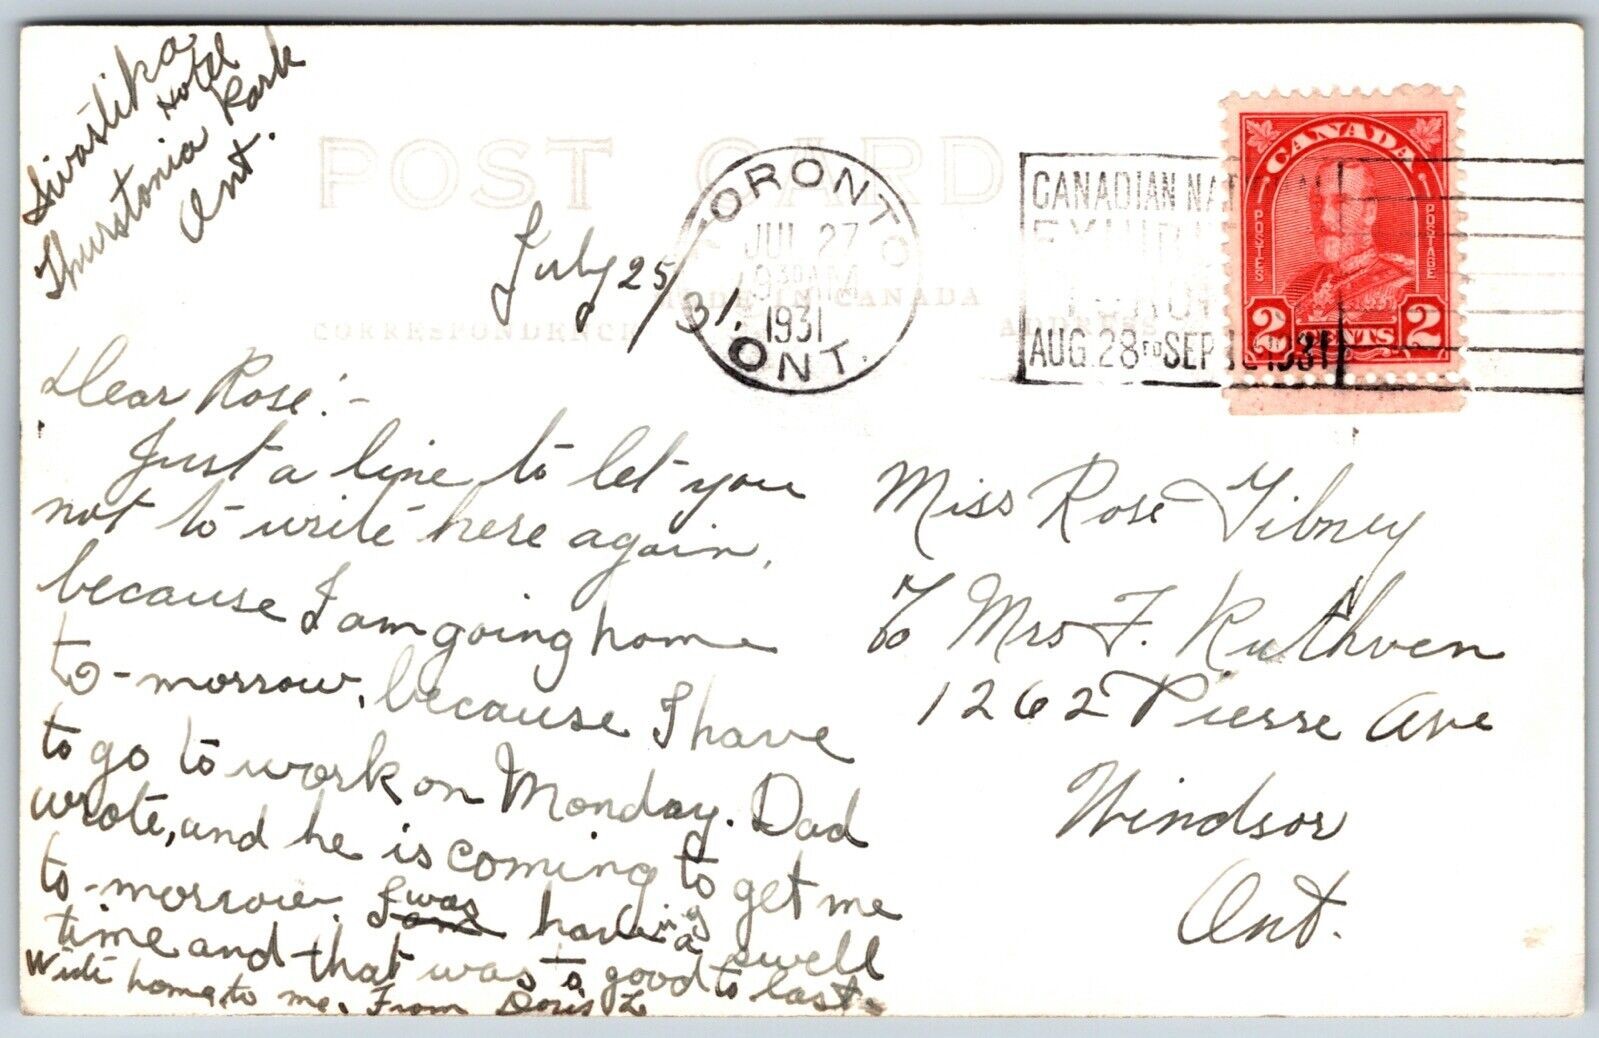 Swastika
Hotel
Thurstonia Park
Ont.
POST CARD
July 25/31.
TORONTO
JUL 27
930AM
1931
ONT.
CANADIAN NATIONAL
EXHIBITION
TORONTO
AUG. 28 TO SEP. 12 1931
CANADA
POSTES
POSTAGE
2 CENTS 2
MADE IN CANADA
CORRESPONDENCE
ADDRESS
Dear Rose:-
Just a line to let you
not to write here again,
because I am going home
to-morrow, because I have
to go to work on Monday. Dad
wrote, and he is coming to get me
to-morrow. I was having a swell
time and that was to good to last.
Write home to me. From Doris L
Miss Rose Tibney
c/o Mrs F. Ruthven
1262 Pierre Ave
Windsor
Ont.